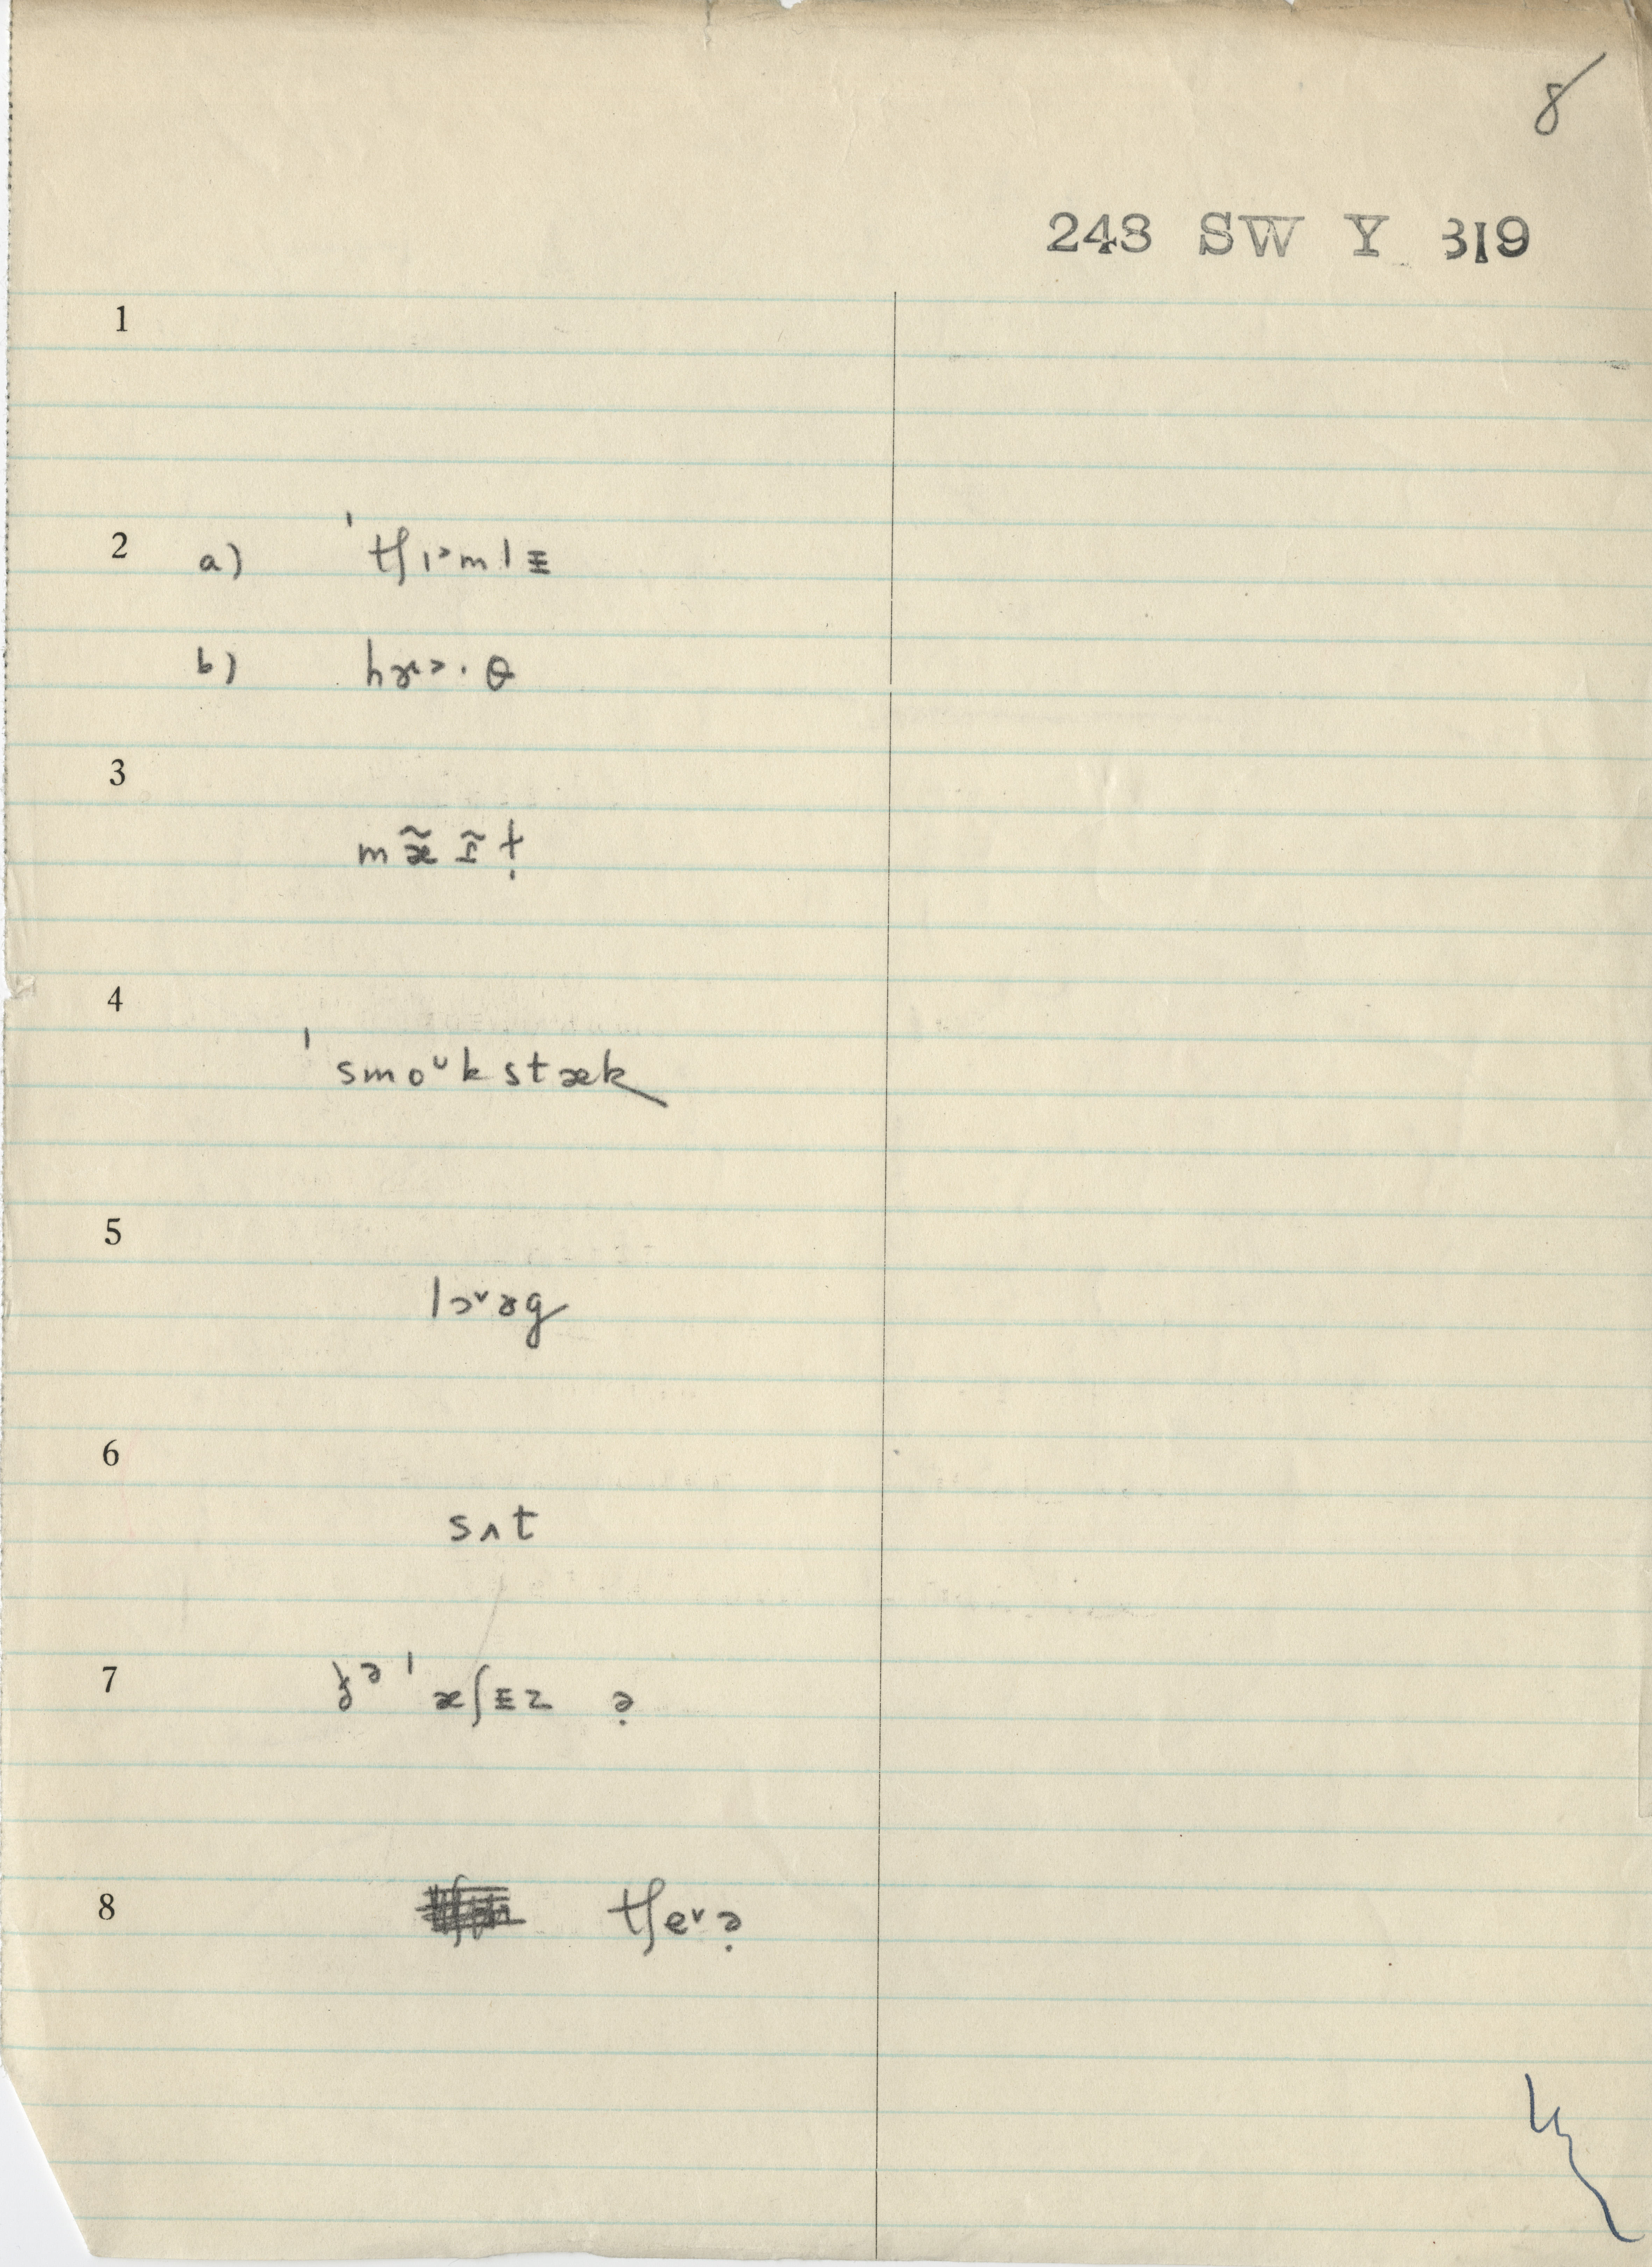 8
248 SW Y 319
1
2 a) ˈtʃɪ˃mlɪ
b) hɤ˃·θ
3 mæ̃ɪ̃ṭ
4 ˈsmoᵘkstæk
5 lɔ˅ɤg
6 sʌt
7 ðə ˈæʃɪz ə̣
8 tʃe˅ə̣